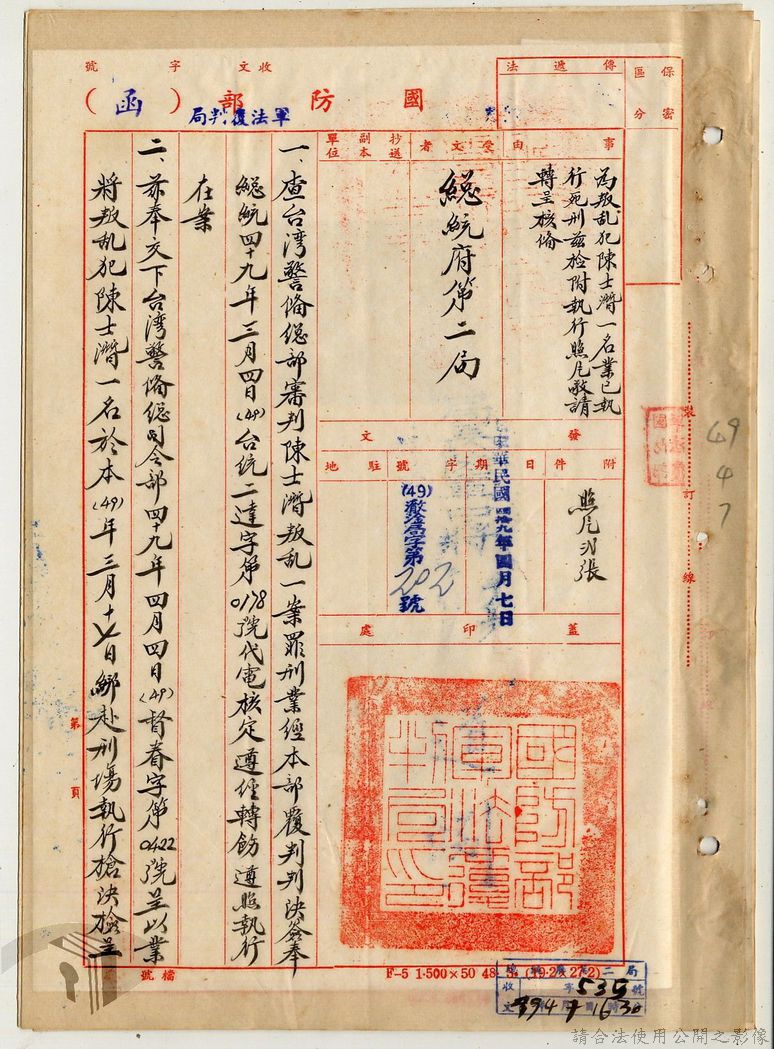 保密
區分
傳遞法
收文 字 號
國防部（函）
軍法覆判局
事由
為叛乱犯陳士潛一名業已執
行死刑茲檢附執行照片敬請
轉呈核備
受文者
總統府第二局
抄送
副本
單位
發文
附件
照片2張
日期
中華民國四拾九年四月七日
字號
(49)
字第
202
號
駐地
蓋印處
國防部
軍法覆
判局印
一、查台湾警備總部審判陳士潛叛乱一案罪刑業經本部覆判判決簽奉
總統四十九年三月四日(49)台統二達字第0178號代電核定遵經轉飭遵照執行
在案
二、茲奉交下台湾警備總司令部四十九年四月四日(49)督春字第0422號呈以業
將叛乱犯陳士潛一名於本(49)年三月十七日綁赴刑場執行槍決檢呈
裝
訂
線
49
4
7
第 頁
檔號
F-5 1·500×50 48
二局
收 字 539 號
文
請合法使用公開之影像